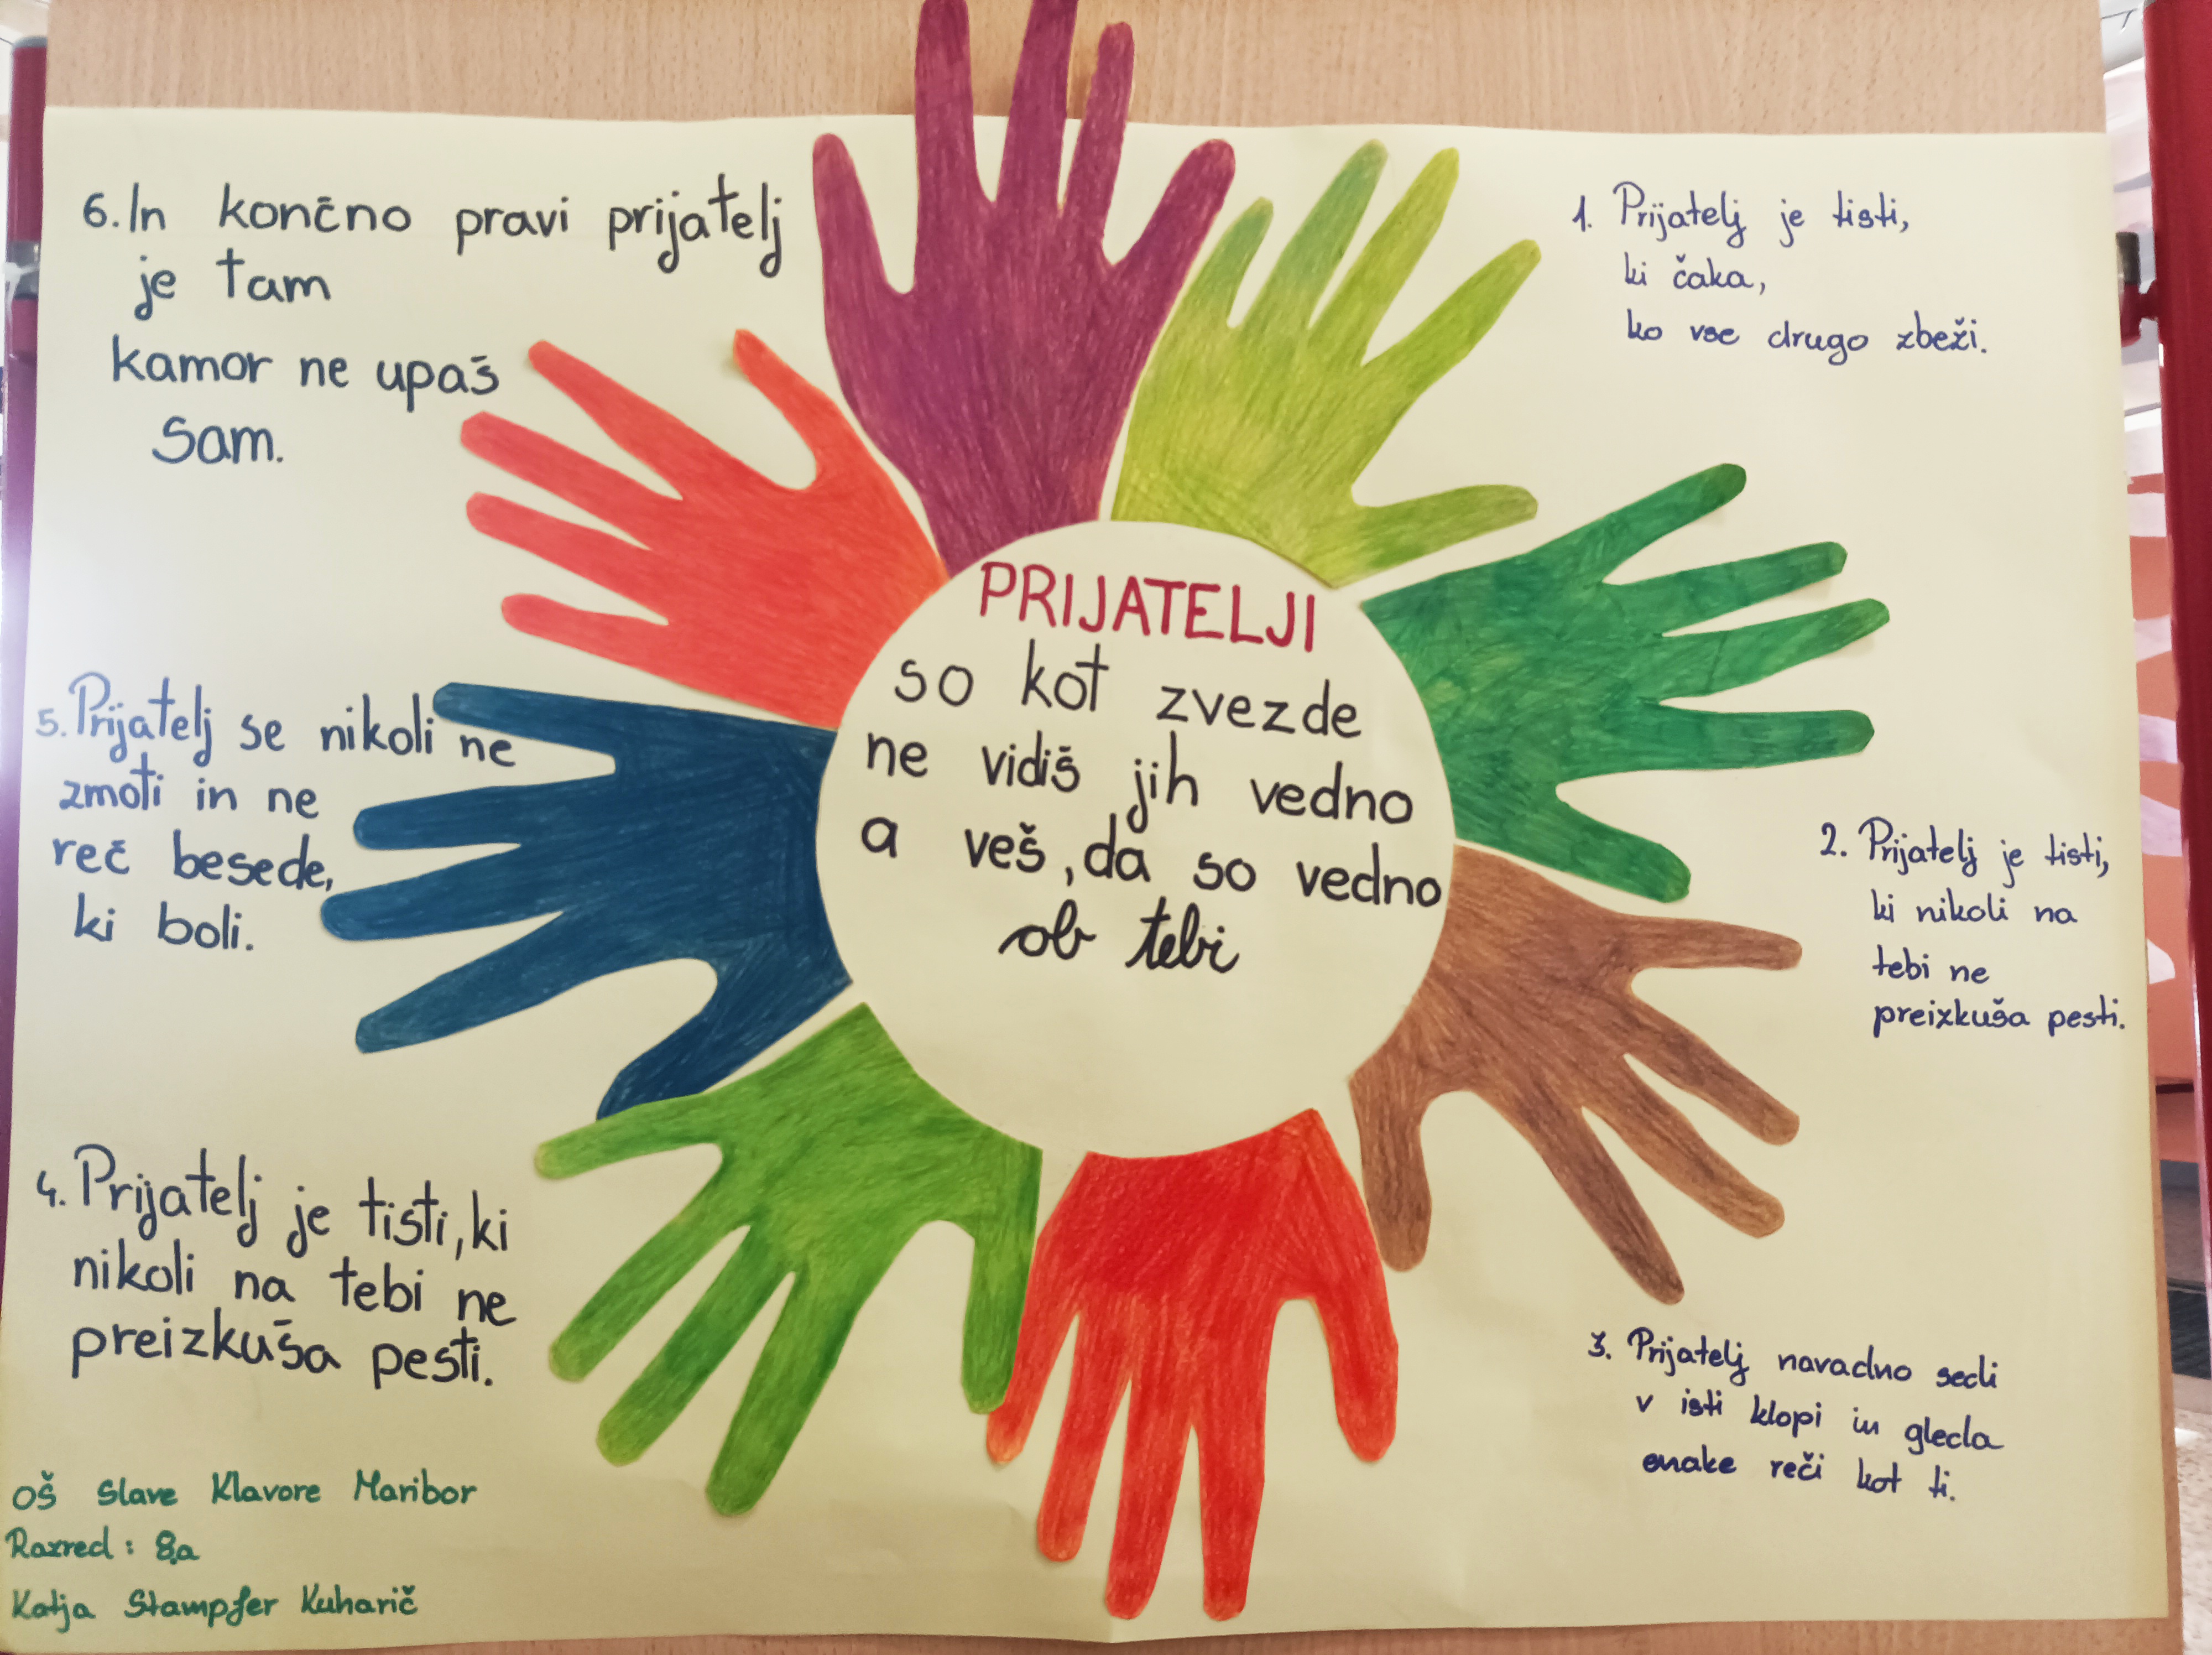 PRIJATELJI
so kot zvezde
ne vidiš jih vedno
a veš, da so vedno
ob tebi
1. Prijatelj je tisti,
ki čaka,
ko vse drugo zbeži.
2. Prijatelj je tisti,
ki nikoli na
tebi ne
preizkuša pesti.
3. Prijatelj navadno sedi
v isti klopi in gleda
enake reči kot ti.
4. Prijatelj je tisti, ki
nikoli na tebi ne
preizkuša pesti.
5. Prijatelj se nikoli ne
zmoti in ne
reč besede,
ki boli.
6. In končno pravi prijatelj
je tam
kamor ne upaš
sam.
OŠ Slave Klavore Maribor
Razred: 8.a
Katja Stampfer Kuharič